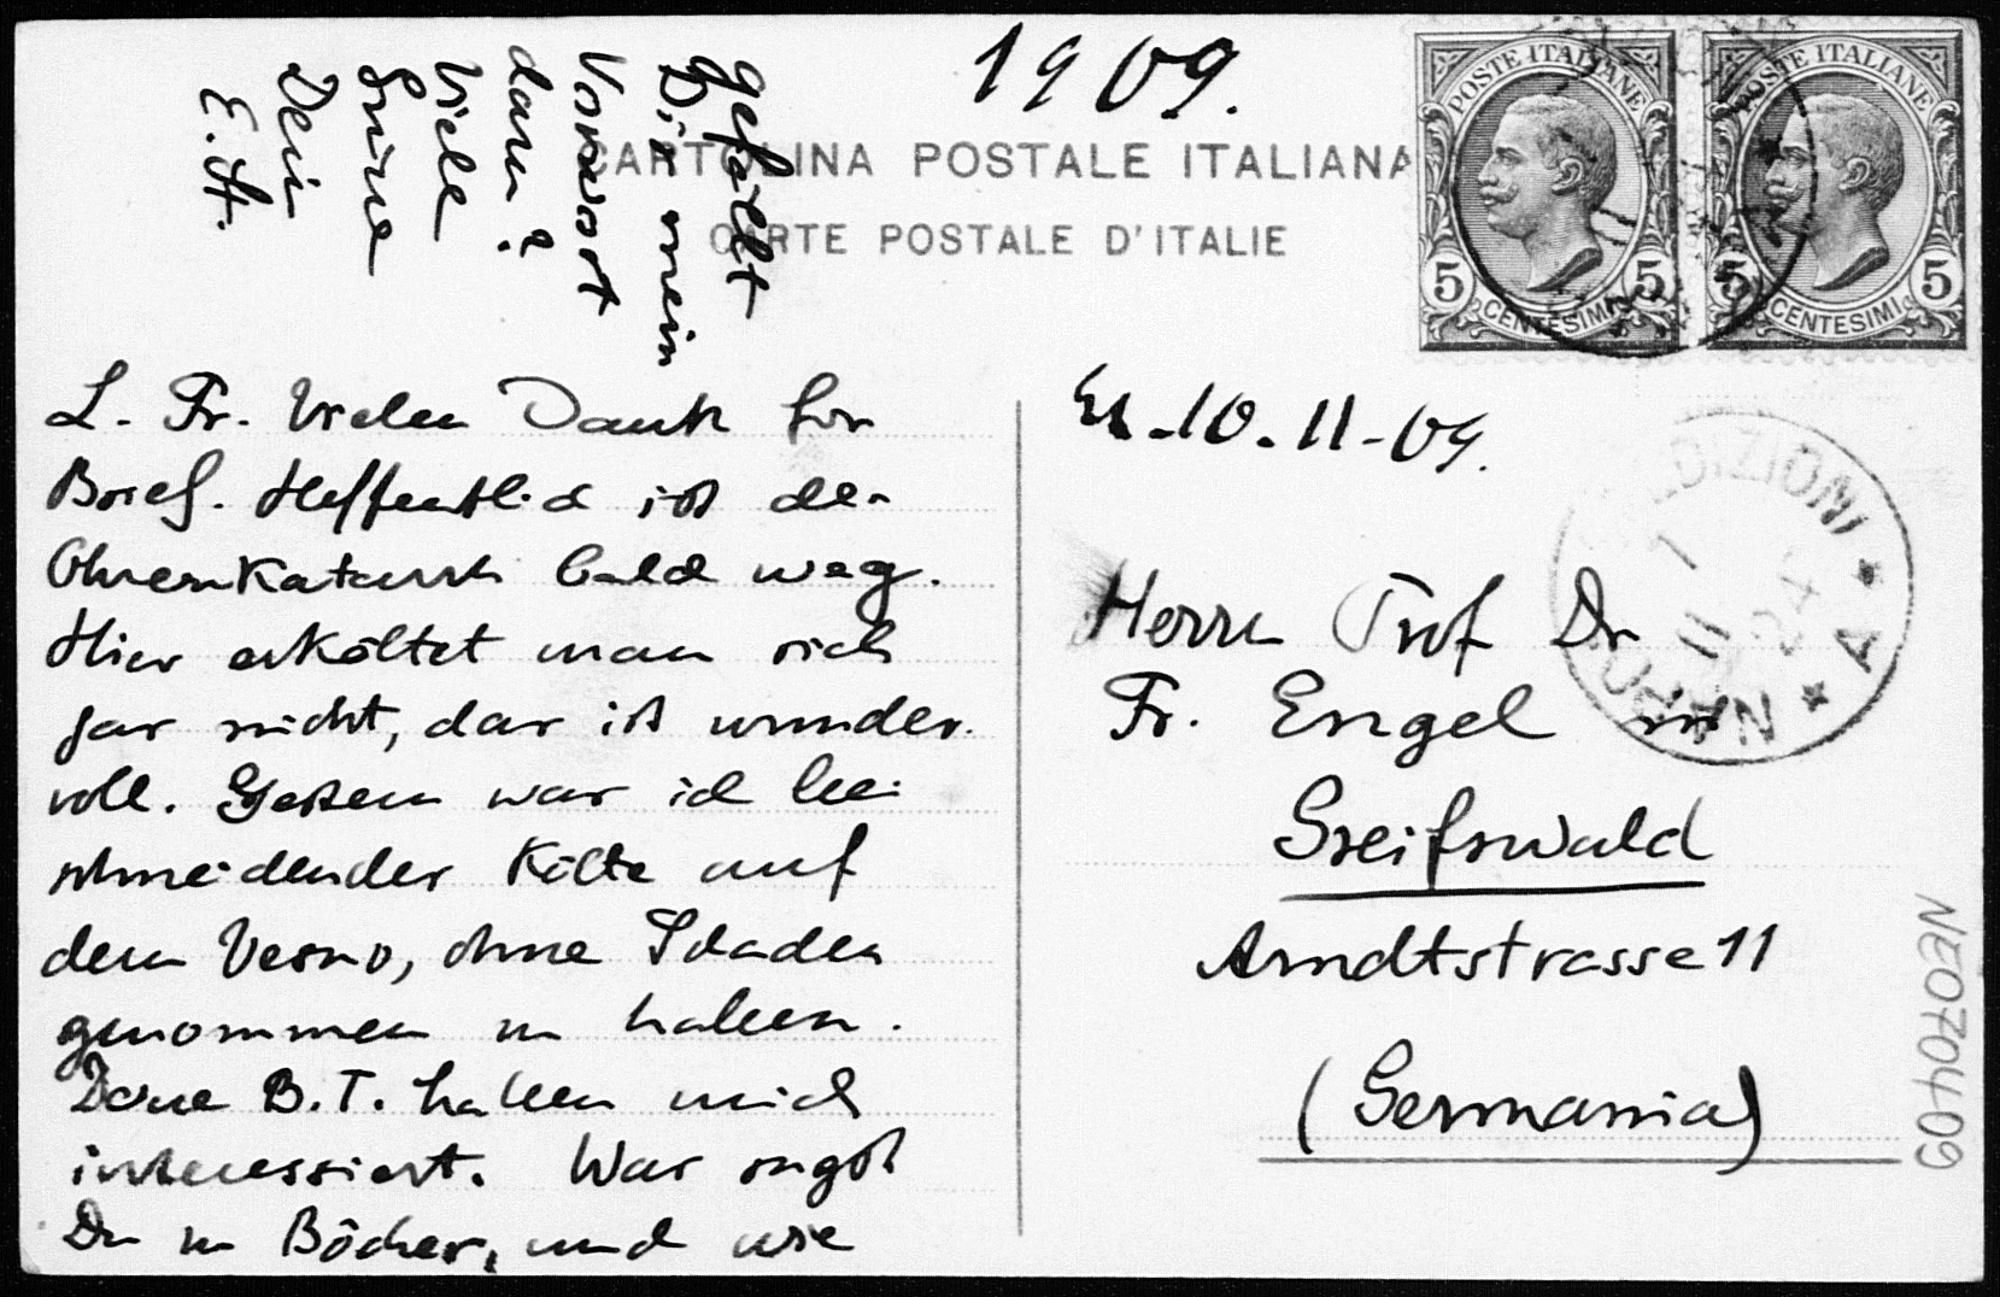 1909.
CARTOLINA POSTALE ITALIANA
CARTE POSTALE D'ITALIE
POSTE ITALIANE
5 5
CENTESIMI
POSTE ITALIANE
5 5
CENTESIMI
L. Fr. Vielen Dank für
Brief. Hoffentlich ist der
Ohrenkatarrh bald weg.
Hier erkältet man sich
gar nicht, das ist wunder-
voll. Gestern war ich bei
schneidender Kälte auf
dem Vesuv, ohne Schaden
genommen zu haben.
Deine B.T. haben mich
interessiert. Was sagst
Du zu Bôcher, und wie
gefällt
Dir mein
Vorwort
dazu?
Viele
Grüsse
Dein
E. St.
10.11.09.
Herrn Prof Dr
Fr. Engel in
Greifswald
Arndtstrasse 11
(Germania)
NAPOLI
11
NEO70409